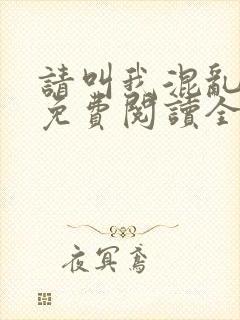 請叫我混亂
免費閱讀全
夜冥鳶